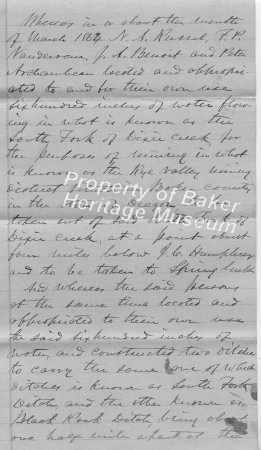 Whereas in or about the month
of March 1864 N. A. Russel, F. P.
Vandervan, J. A. Benoit and Peter
Archambeau located and appropri-
ated to and for their own use
six hundred inches of water flow-
ing in what is known as the
South Fork of Dixie Creek for
the purposes of mining in what
is known as the Rye Valley mining
district Baker County
in the of Oregon
taken out of said
Dixie Creek, at a point about
four miles below J. C. Humphrey
and to be taken to Spring Gulch
And whereas the said persons
at the same time located and
appropriated to their own use
the said six hundred inches of
water, and constructed two ditches
to carry the same one of which
ditches is known as South Fork
Ditch, and the other known as
Black Rock Ditch, being about
one half mile apart at the
Property of Baker
Heritage Museum